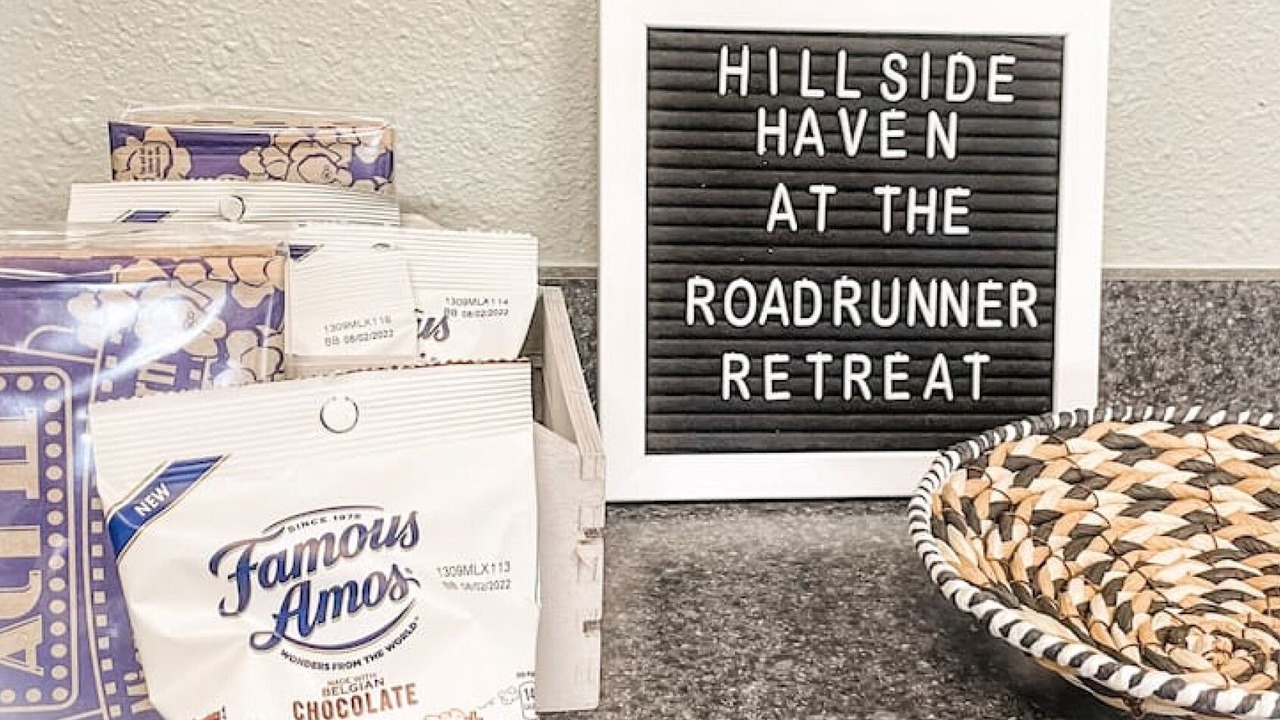 HILLSIDE
HAVEN
AT THE
ROADRUNNER
RETREAT
1309MLX116
BB 08/02/2022
1309MLX114
BB 08/02/2022
us
ACT II
NEW
SINCE 1975
Famous
Amos
WONDERS FROM THE WORLD
1309MLX113
BB 08/02/2022
MADE WITH
BELGIAN
CHOCOLATE